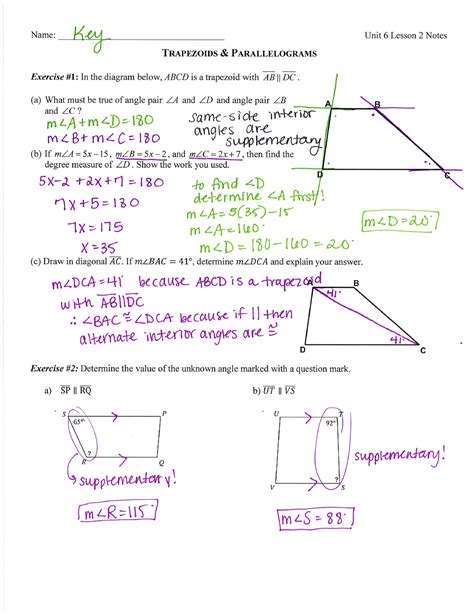 Name: Key Unit 6 Lesson 2 Notes
TRAPEZOIDS & PARALLELOGRAMS
Exercise #1: In the diagram below, ABCD is a trapezoid with AB || DC.
(a) What must be true of angle pair ∠A and ∠D and angle pair ∠B
and ∠C ?
m∠A + m∠D = 180
m∠B + m∠C = 180
same-side interior
angles are
supplementary
A B
D C
(b) If m∠A = 5x−15, m∠B = 5x−2, and m∠C = 2x+7, then find the
degree measure of ∠D. Show the work you used.
5x-2 + 2x+7 = 180
7x+5 = 180
7x = 175
x = 35
to find ∠D
determine ∠A first!
m∠A = 5(35)-15
m∠A = 160°
m∠D = 180-160 = 20°
m∠D = 20°
(c) Draw in diagonal AC. If m∠BAC = 41°, determine m∠DCA and explain your answer.
m∠DCA = 41° because ABCD is a trapezoid
with AB||DC
∴ ∠BAC ≅ ∠DCA because if || then
alternate interior angles are ≅
A B
41°
41°
D C
Exercise #2: Determine the value of the unknown angle marked with a question mark.
a) SP || RQ b) UT || VS
S P
65°
?
R Q
supplementary!
m∠R = 115°
U T
92°
?
V S
supplementary!
m∠S = 88°